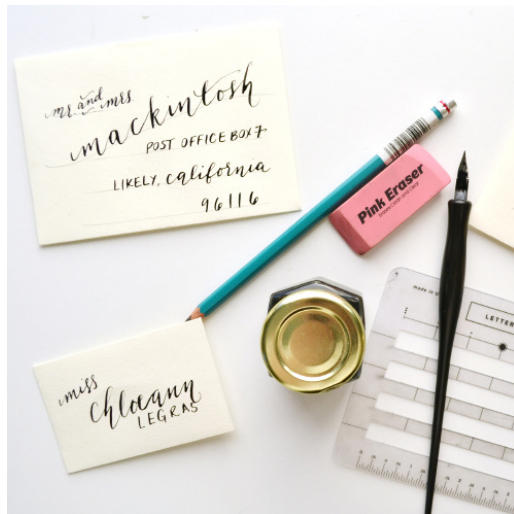 mr. and mrs.
mackintosh
POST OFFICE BOX 7
LIKELY, california
96116
Pink Eraser
miss
chloeann
LEGRAS
made in
LETTER